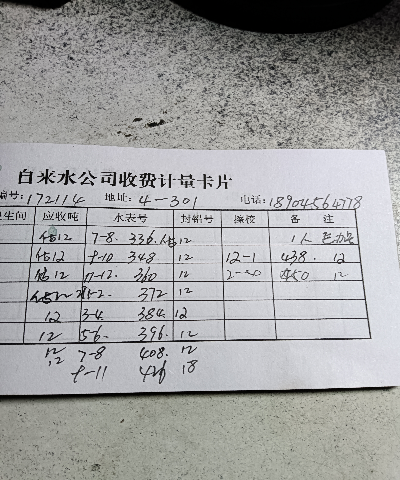 自来水公司收费计量卡片
编号:172114 地址: 4-301 电话: 18904564778
卫生间 应收吨 水表号 封铅号 稽核 备 注
估12 7-8. 336. 估12 1人
估12 9-10 348 12 12-1 438. 12
估12 11-12. 360 12 2-20 450 12
估12 1-2. 372 12
12 3-4 384 12
12 5-6. 396. 12
12 7-8 408. 12
12 9-11 426 18